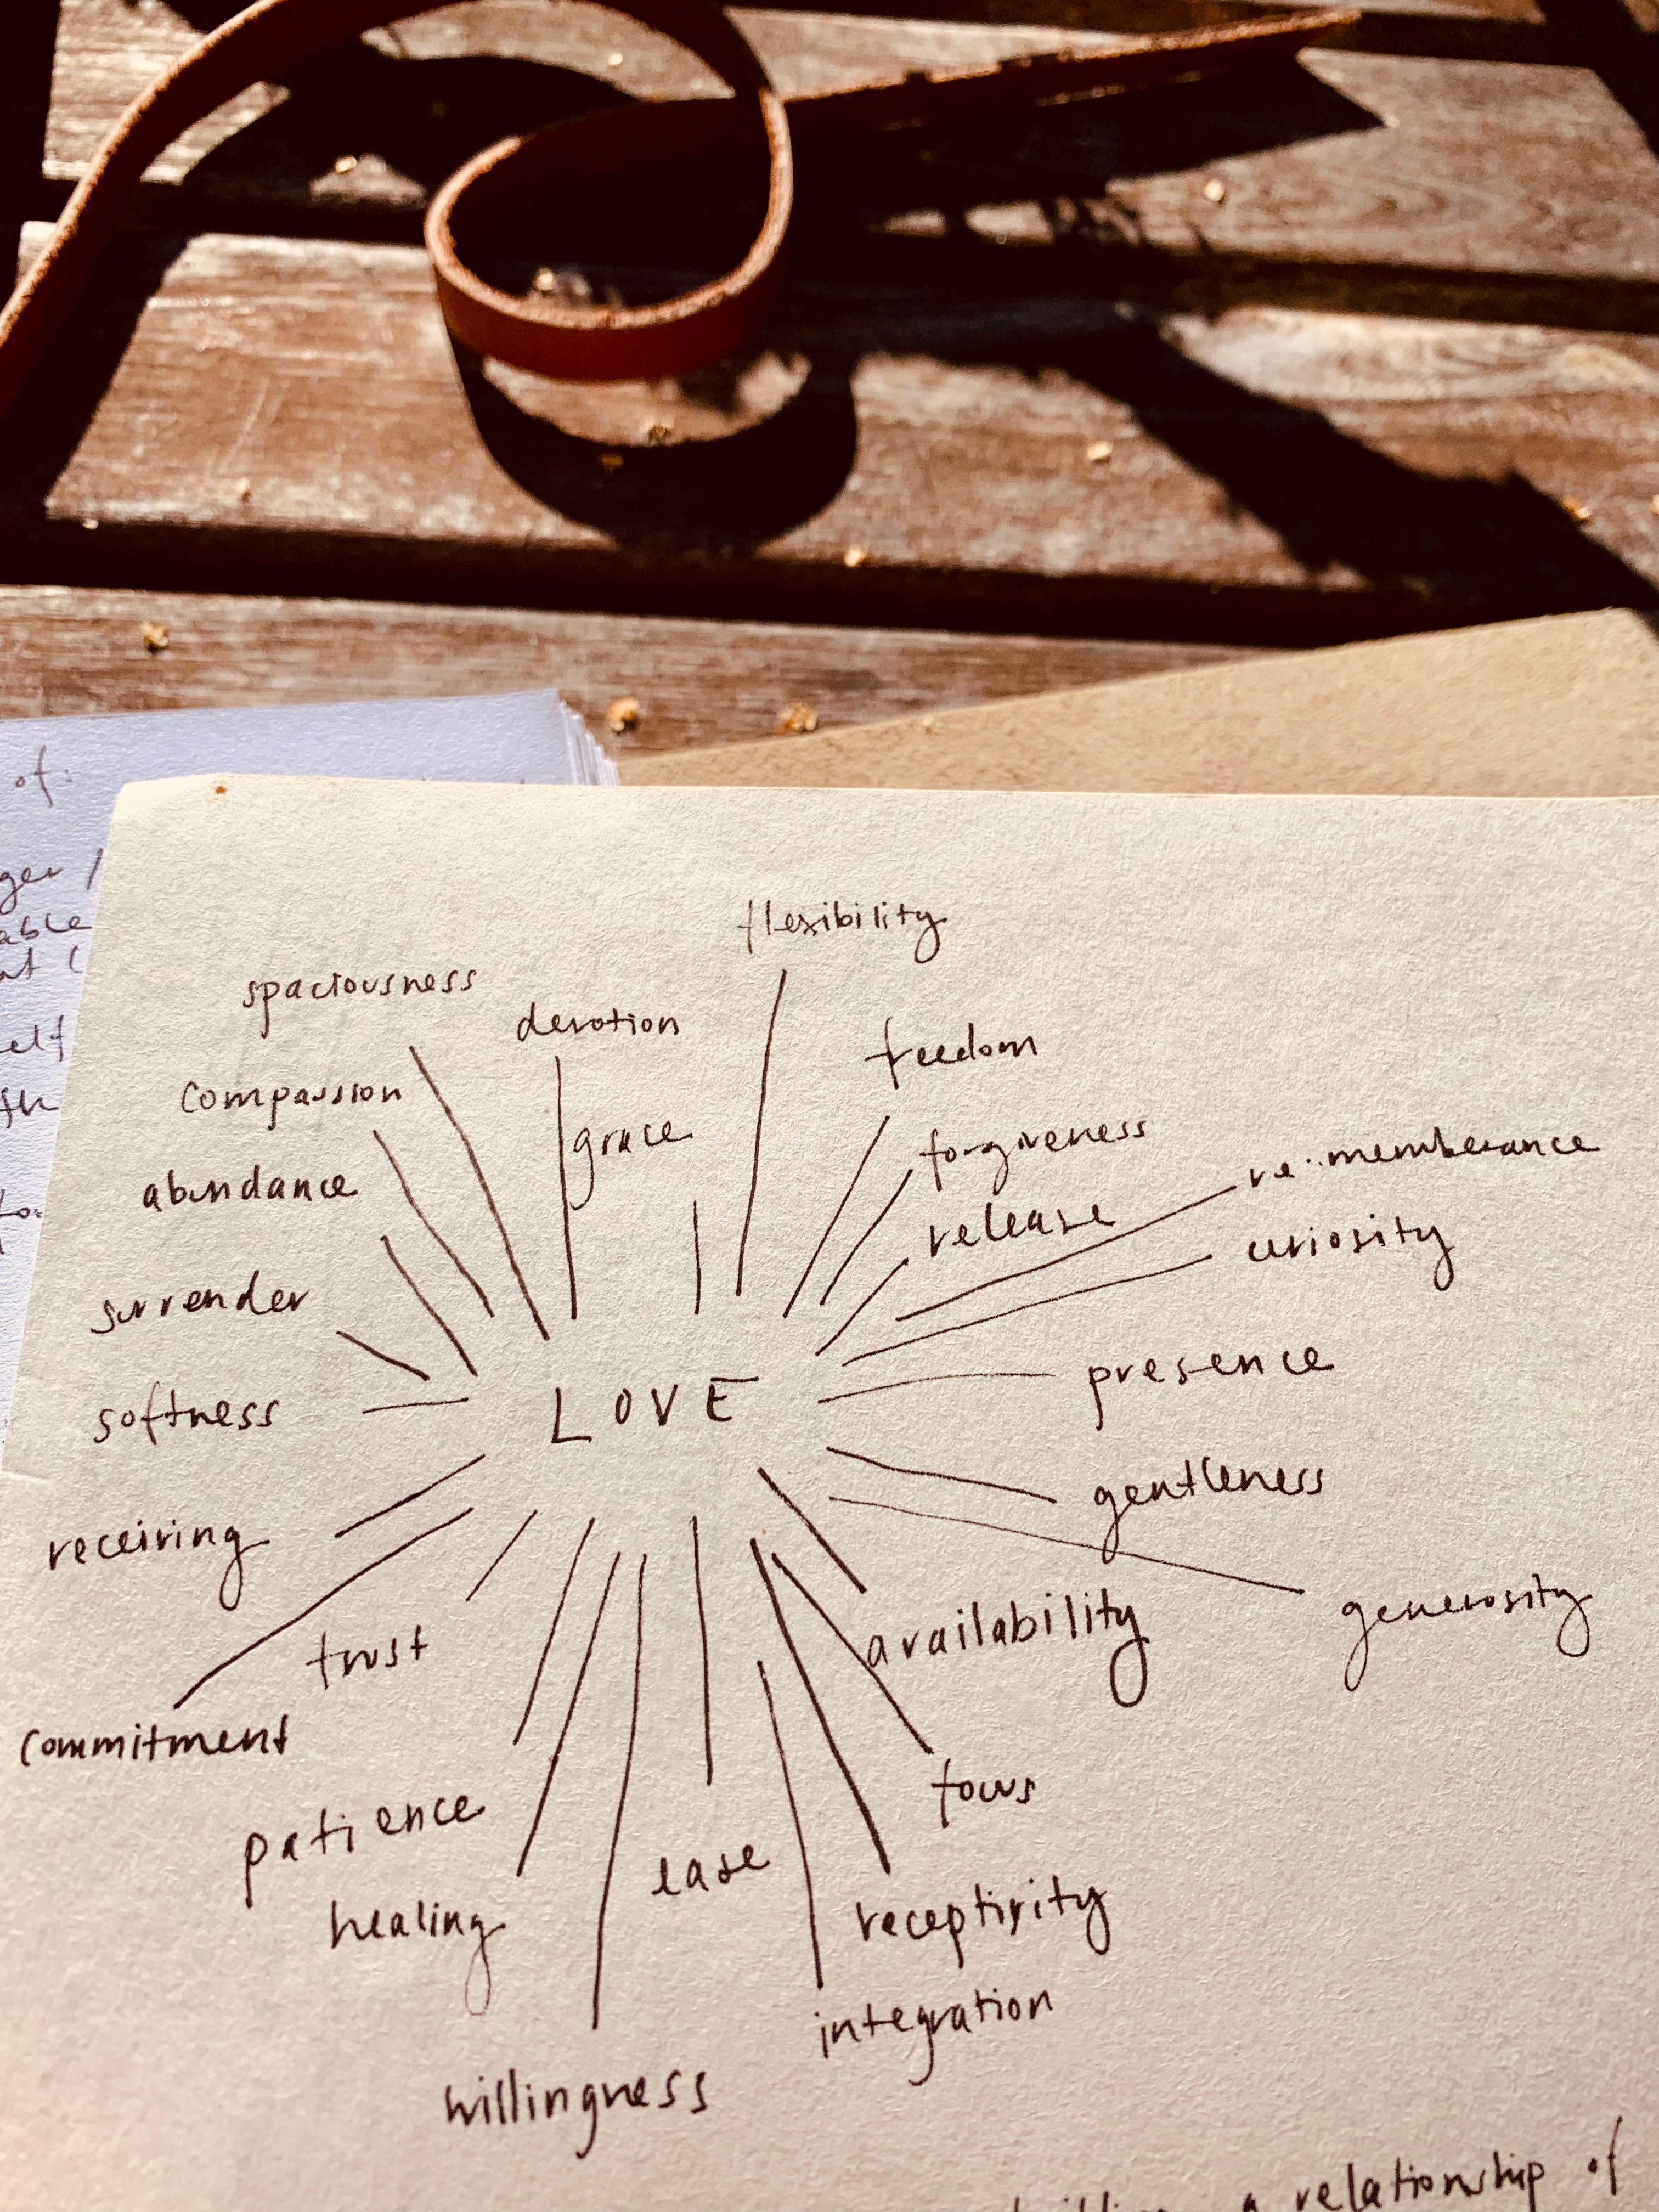 of:
able
flexibility
spaciousness
devotion
freedom
compassion
grace
forgiveness
re:memberance
abundance
release
curiosity
surrender
presence
softness
LOVE
gentleness
receiving
generosity
trust
availability
commitment
focus
patience
ease
healing
receptivity
integration
willingness
a relationship of